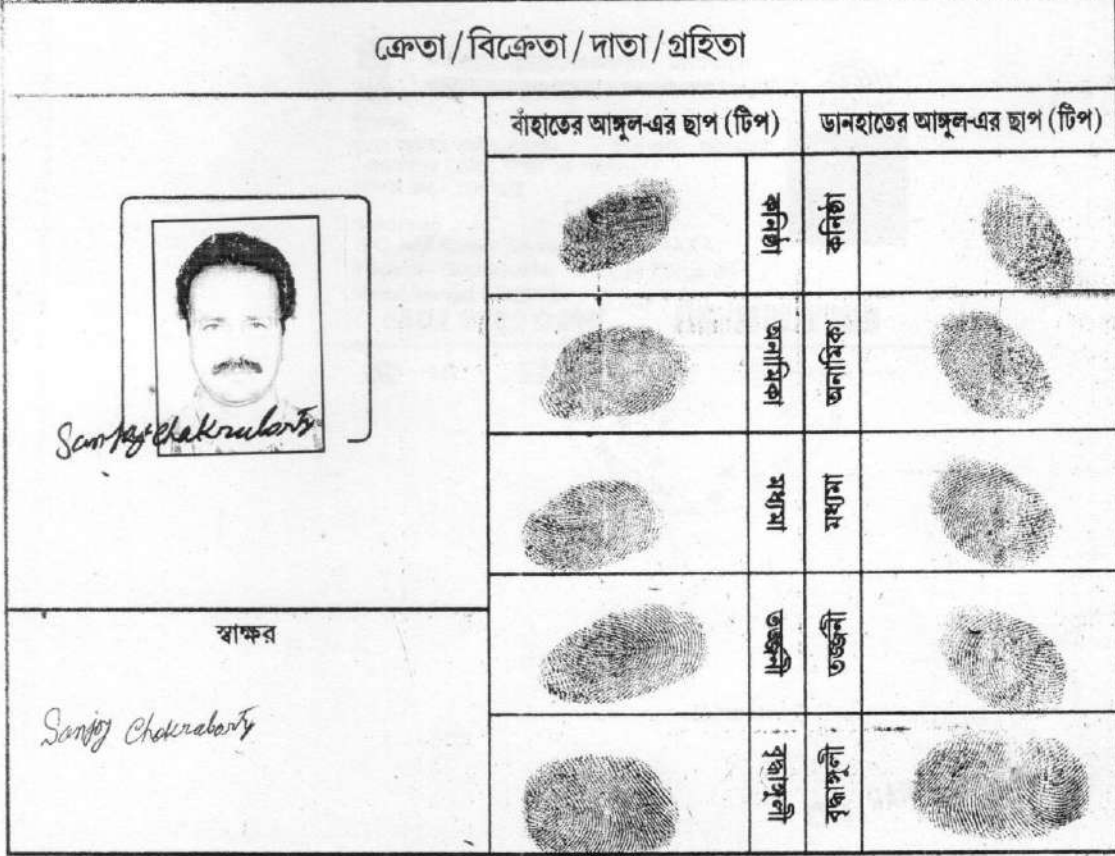 ক্রেতা/বিক্রেতা/দাতা/গ্রহিতা
বাঁহাতের আঙ্গুল-এর ছাপ (টিপ)
ডানহাতের আঙ্গুল-এর ছাপ (টিপ)
কনিষ্ঠা
কনিষ্ঠা
অনামিকা
অনামিকা
মধ্যমা
মধ্যমা
তর্জ্জনী
তর্জ্জনী
বৃদ্ধাঙ্গুলী
বৃদ্ধাঙ্গুলী
Sanjoy Chakraborty
স্বাক্ষর
Sanjoy Chakraborty